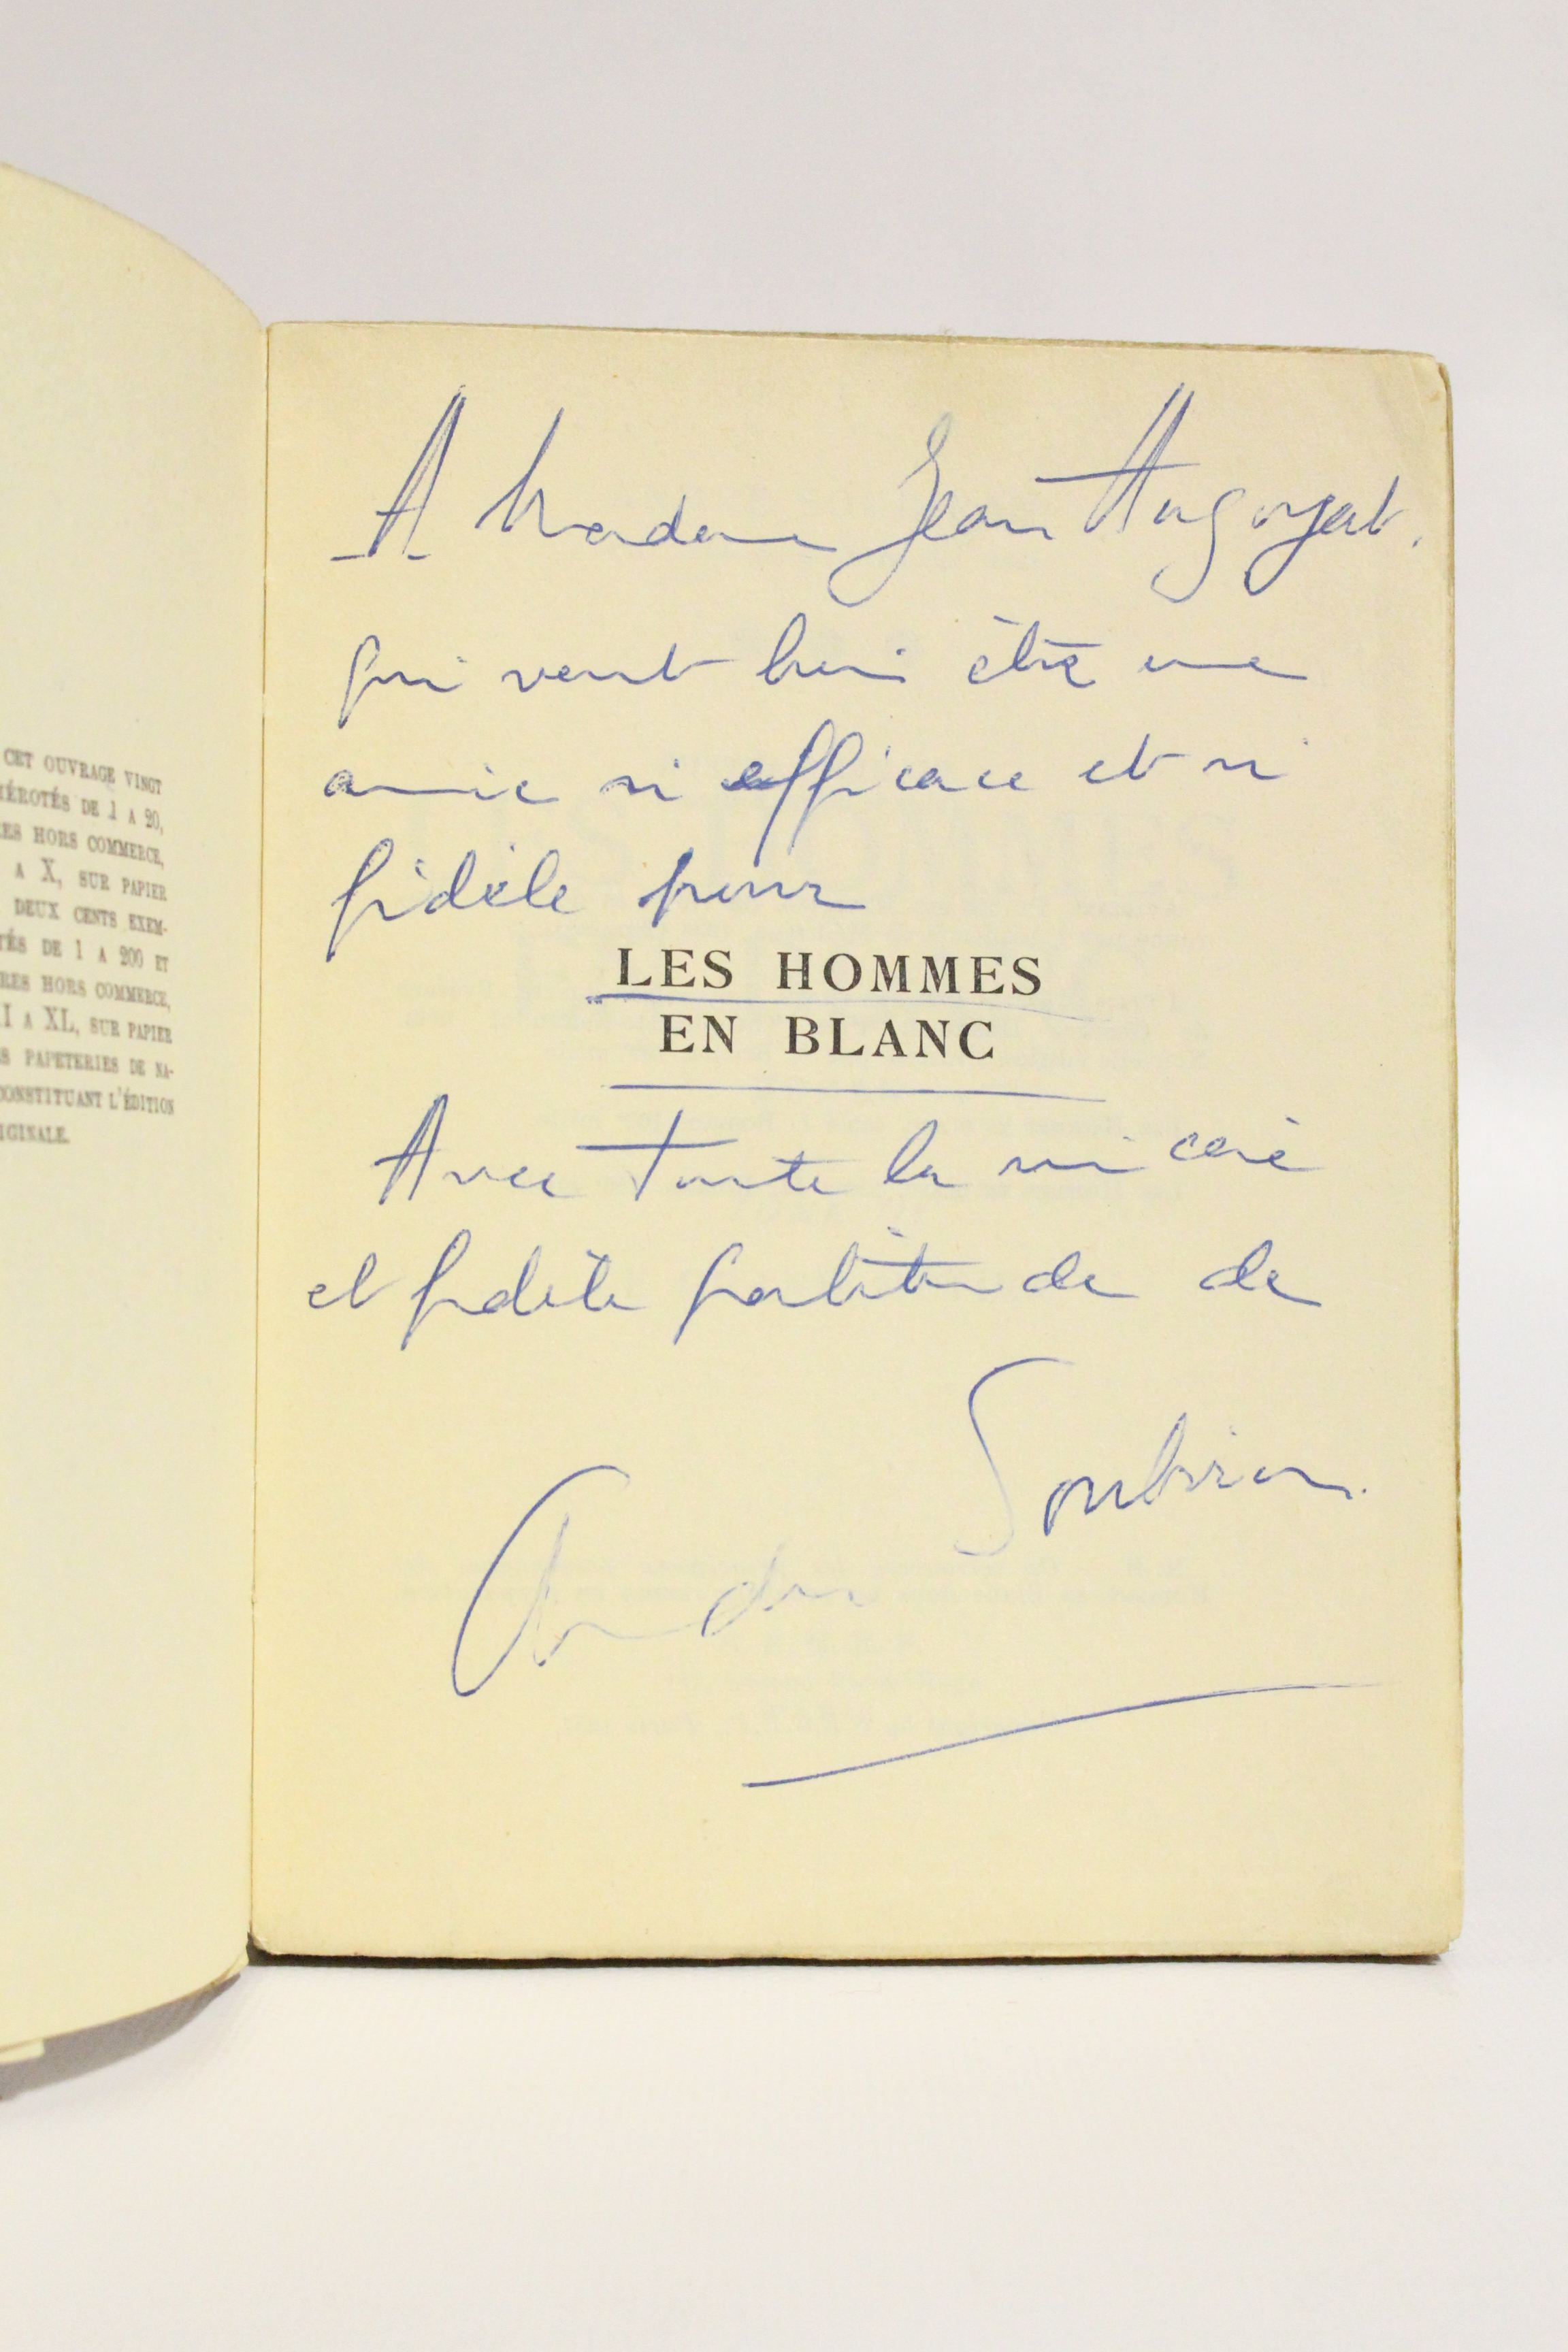 CET OUVRAGE VINGT
MÉROTÉS DE 1 A 20,
RES HORS COMMERCE,
A X, SUR PAPIER
DEUX CENTS EXEM-
TÉS DE 1 A 200 ET
RES HORS COMMERCE,
I A XL, SUR PAPIER
S PAPETERIES DE NA-
CONSTITUANT L'ÉDITION
IGINALE.
A Madame Jean Augoyat.
qui veut bien être une
amie si efficace et si
fidèle pour
LES HOMMES
EN BLANC
Avec toute la sincère
et fidèle gratitude de
André Soubiran.